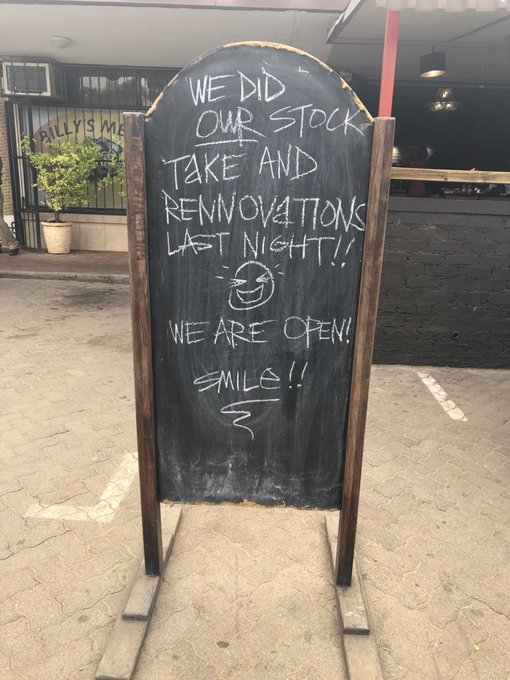 WE DID
OUR STOCK
TAKE AND
RENNOVATIONS
LAST NIGHT!!
WE ARE OPEN!
SMILE!!
BILLY'S ME